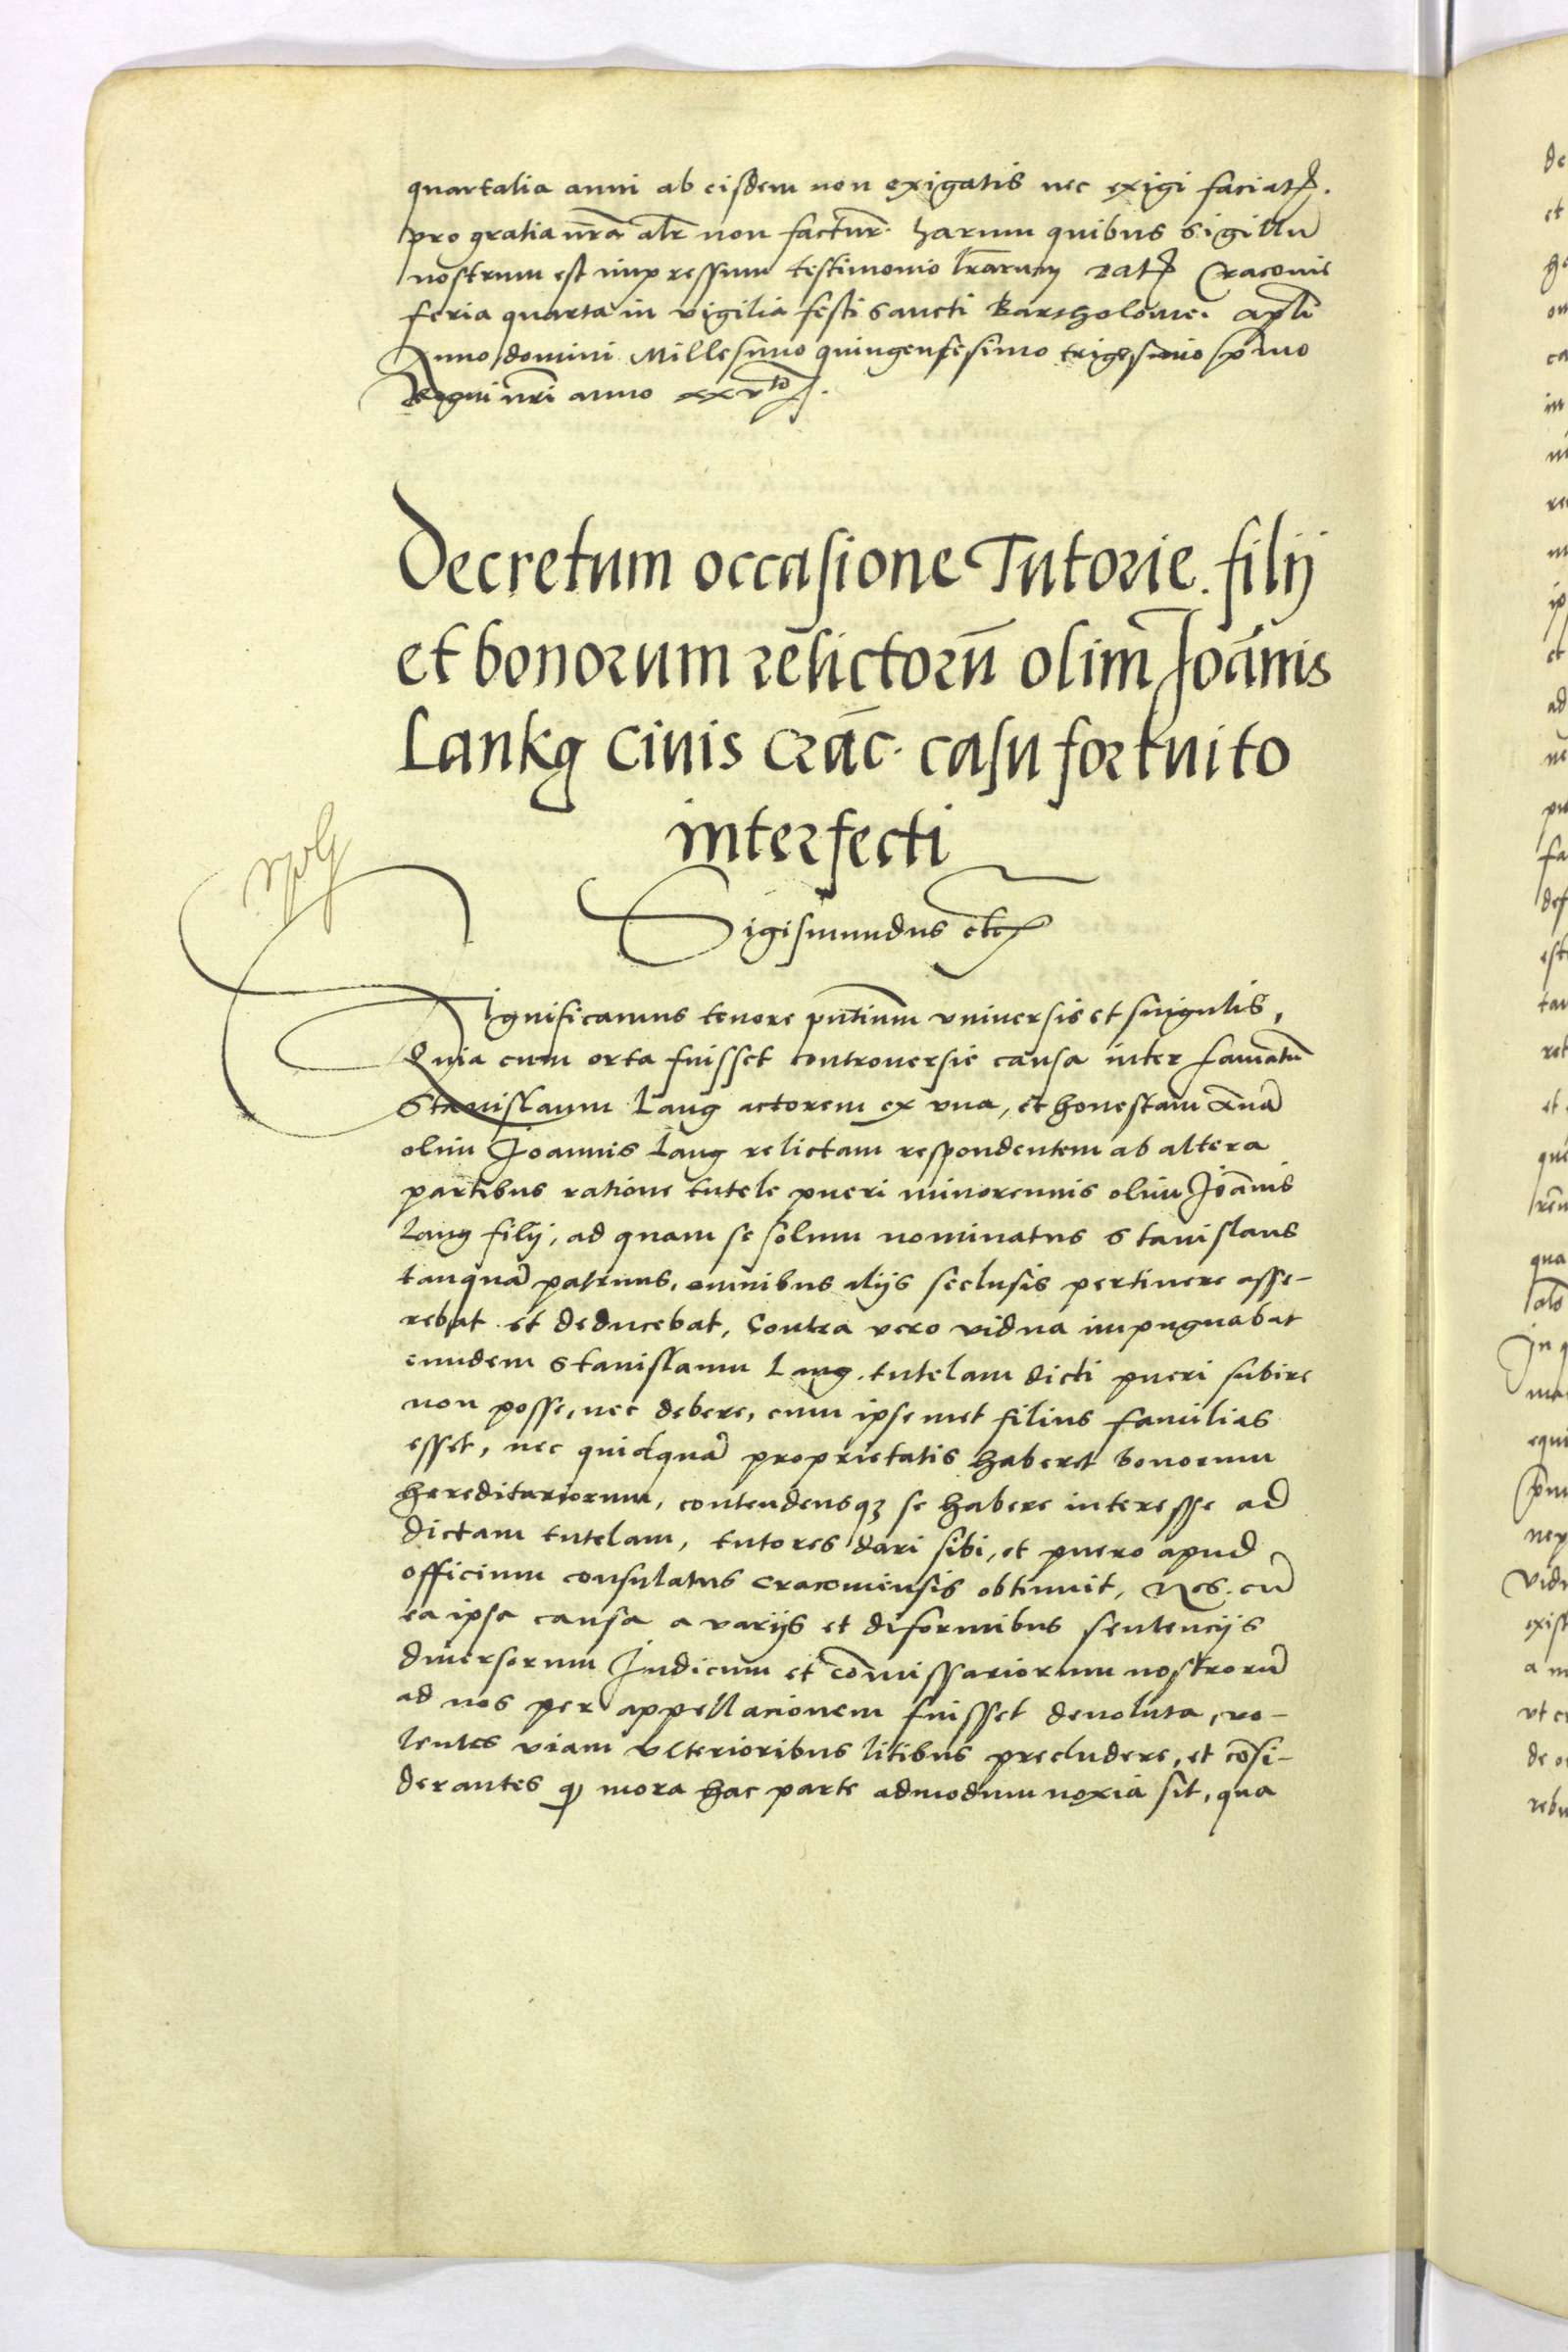 quartalia anni ab eisdem non exigatis nec exigi faciatꝭ.
pro gratia nr̃a alr̃ non facturr̃. harum quibus Sigillũ
nostrum est impressum testimonio lr̃arum Datꝭ Cracouie
feria quarta in vigilia festi sancti Bartholomei apl̃i
Anno domini Millesimo quingentesimo trigesimo p̃mo
Regni nr̃i anno xxvto.
Decretum occasione Tutorie filij
et bonorum relictorũ olim Joãnnis
Lankg Ciuis Crac̃. casu fortuito
interfecti
Sigismundus etcꝭ
Significamus tenore pñtium vniuersis et singulis,
Quia cum orta fuisset controuersie causa inter famatũ
Stanislaum Lang actorem ex vna, et honestam Annã
olim Joannis Lang relictam respondentem ab altera
partibus ratione tutele pueri minorennis olim Joãnis
Lang filij, ad quam se solum nominatus Stanislaus
tanquã patruus, omnibus alijs seclusis pertinere asse-
rebat et deducebat, Contra vero vidua impugnabat
eundem Stanislaum Lang. tutelam dicti pueri subire
non posse, nec debere, cum ipsemet filius familias
esset, nec quidquã proprietatis haberet bonorum
hereditariorum, contendensqꝫ se habere interesse ad
dictam tutelam, tutores dari sibi, et puero apud
officium consulatus Cracouiensis obtinuit, Nos. cũ
ea ipsa causa a varijs et difformibus sentencijs
diuersorum Judicum et com̃issariorum nostrorũ
ad nos per appellacionem fuisset deuoluta, vo-
lentes viam vlterioribus litibus precludere, et cõsi-
derantes ꝙ mora hac parte admodum noxia sit, qua